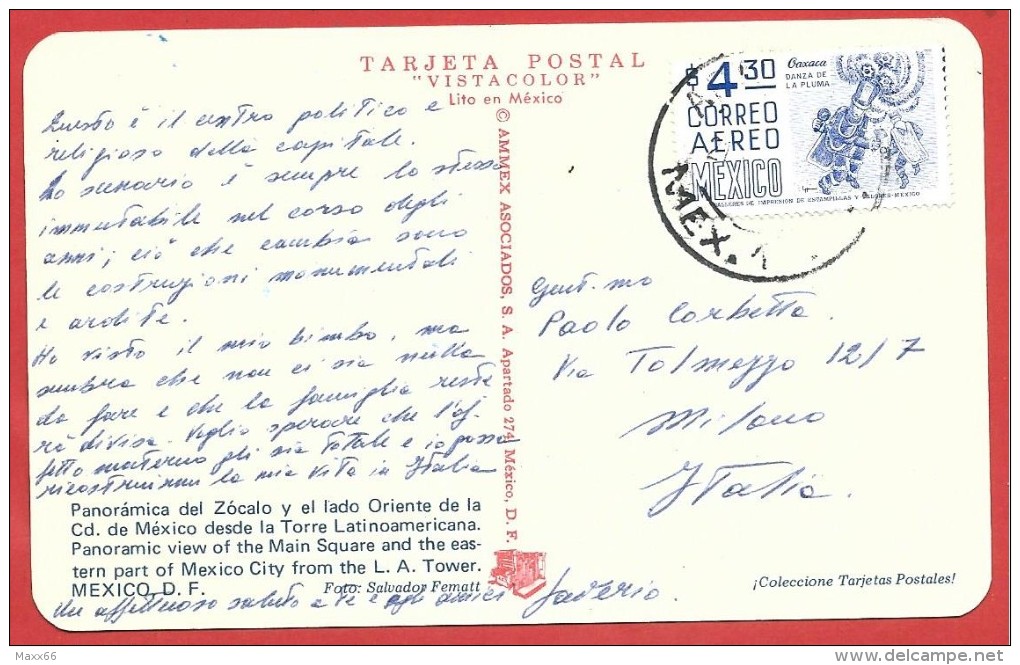 TARJETA POSTAL
"VISTACOLOR"
Lito en México
$4.30
CORREO
AEREO
MEXICO
Oaxaca
DANZA DE
LA PLUMA
TALLERES DE IMPRESION DE ESTAMPILLAS Y VALORES-MEXICO
MEX.
Questo è il centro politico e
religioso della capitale.
Lo scenario è sempre lo stesso
immutabile nel corso degli
anni; ciò che cambia sono
le costruzioni monumentali
e ardite.
Ho visto il mio bimbo, ma
sembra che non ci sia nulla
da fare e che la famiglia reste
rà divisa. Voglio sperare che l'af
fetto materno gli sia totale e io possa
ricostruirmi la mia vita in Italia
© AMMEX ASOCIADOS, S. A. Apartado 274, México, D. F.
Gent.mo
Paolo Corbetta
Via Tolmezzo 12/7
Milano
Italia.
Panorámica del Zócalo y el lado Oriente de la
Cd. de México desde la Torre Latinoamericana.
Panoramic view of the Main Square and the eas-
tern part of Mexico City from the L. A. Tower.
MEXICO, D. F. Foto: Salvador Fematt
¡Coleccione Tarjetas Postales!
Un affettuoso saluto a te e agli amici Saverio.
Maxx66
delcampe.net